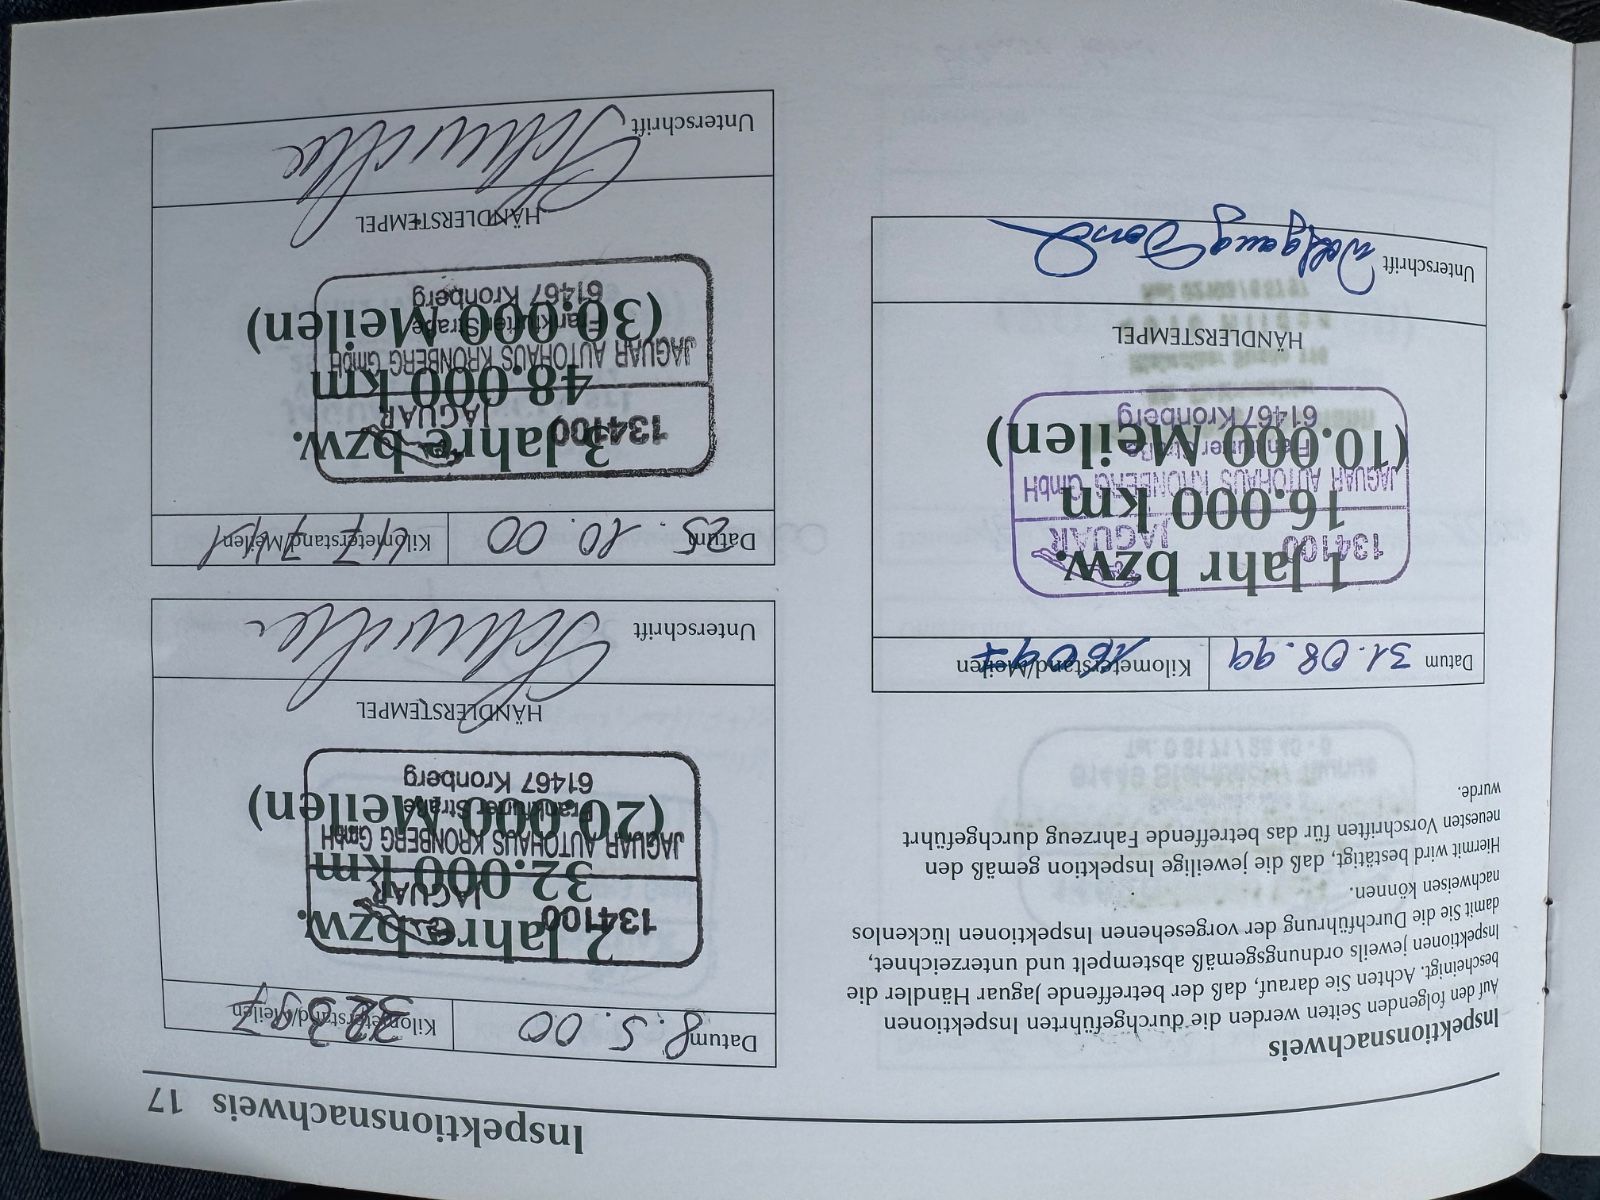 Inspektionsnachweis 17
Inspektionsnachweis
Auf den folgenden Seiten werden die durchgeführten Inspektionen
bescheinigt. Achten Sie darauf, daß der betreffende Jaguar Händler die
Inspektionen jeweils ordnungsgemäß abstempelt und unterzeichnet,
damit Sie die Durchführung der vorgesehenen Inspektionen lückenlos
nachweisen können.
Hiermit wird bestätigt, daß die jeweilige Inspektion gemäß den
neuesten Vorschriften für das betreffende Fahrzeug durchgeführt
wurde.
Datum 31.08.99 Kilometerstand/Meilen 16047
1 Jahr bzw.
16.000 km
(10.000 Meilen)
134100 JAGUAR
JAGUAR AUTOHAUS KRONBERG GmbH
Frankfurter Straße
61467 Kronberg
HÄNDLERSTEMPEL
Unterschrift Wolfgang
Datum 8.5.00 Kilometerstand/Meilen 32397
2 Jahre bzw.
32.000 km
(20.000 Meilen)
134100 JAGUAR
JAGUAR AUTOHAUS KRONBERG GmbH
Frankfurter Straße
61467 Kronberg
HÄNDLERSTEMPEL
Unterschrift
Datum 25.10.00 Kilometerstand/Meilen
3 Jahre bzw.
48.000 km
(30.000 Meilen)
134100 JAGUAR
JAGUAR AUTOHAUS KRONBERG GmbH
Frankfurter Straße
61467 Kronberg
HÄNDLERSTEMPEL
Unterschrift